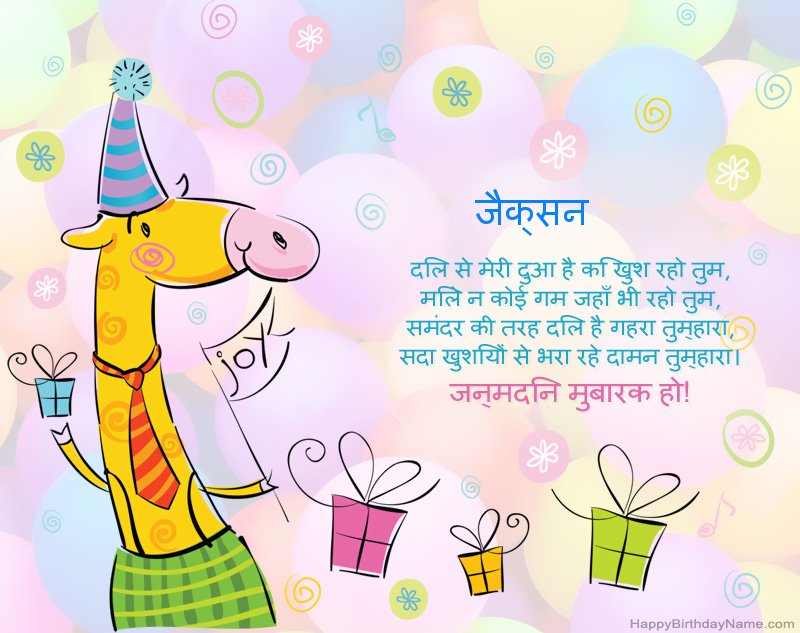 जैक्सन
दिल से मेरी दुआ है कि खुश रहो तुम,
मिले न कोई गम जहाँ भी रहो तुम,
समंदर की तरह दिल है गहरा तुम्हारा,
सदा खुशियों से भरा रहे दामन तुम्हारा।
जन्मदिन मुबारक हो!
joy
HappyBirthdayName.com